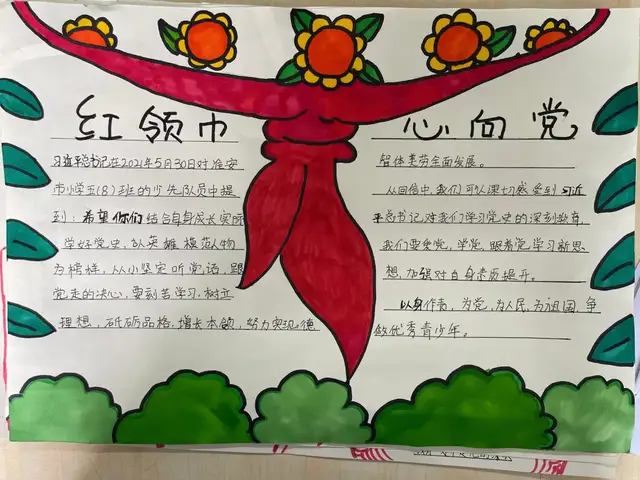 红领巾
心向党
习近平总书记在2021年5月30日对淮安
市小学五(8)班的少先队员中提
到：希望你们结合自身成长实际
学好党史，以英雄模范人物
为榜样，从小坚定听党话，跟
党走的决心，要刻苦学习，树立
理想，砥砺品格，增长本领，努力实现德
智体美劳全面发展。
从回信中，我们可以深切感受到习近
平总书记对我们学习党史的深刻教育，
我们要爱党，学党，跟着党学习新思
想，加强对自身素质提升。
以身作责，为党，为人民，为祖国，争
做优秀青少年。